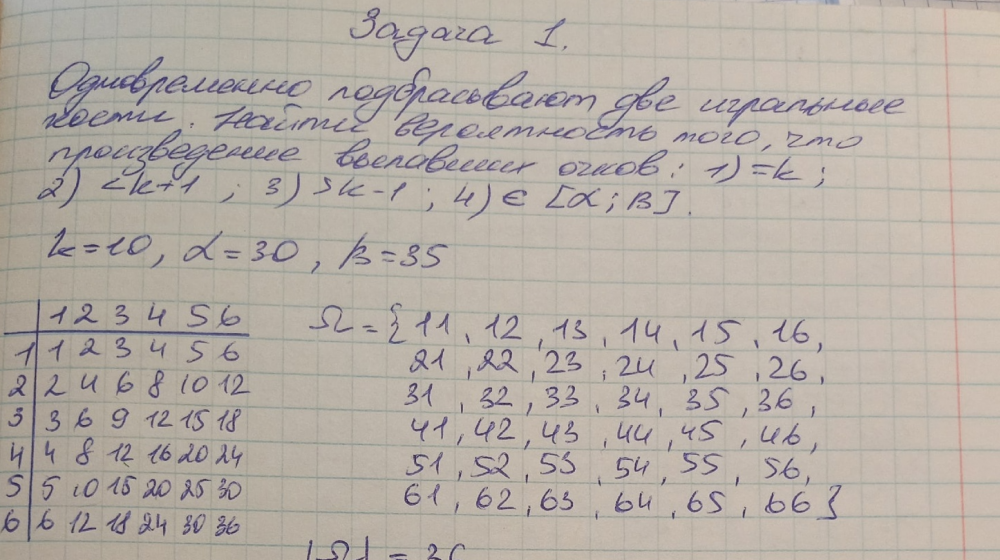 Задача 1.
Одновременно подбрасывают две игральные
кости. Найти вероятность того, что
произведение выпавших очков: 1) =k;
2) <k+1 ; 3) >k-1 ; 4) ∈ [α; β].
k=10, α=30, β=35
1 2 3 4 5 6
1 1 2 3 4 5 6
2 2 4 6 8 10 12
3 3 6 9 12 15 18
4 4 8 12 16 20 24
5 5 10 15 20 25 30
6 6 12 18 24 30 36
Ω = {11, 12, 13, 14, 15, 16,
21, 22, 23, 24, 25, 26,
31, 32, 33, 34, 35, 36,
41, 42, 43, 44, 45, 46,
51, 52, 53, 54, 55, 56,
61, 62, 63, 64, 65, 66}
|Ω| = 36